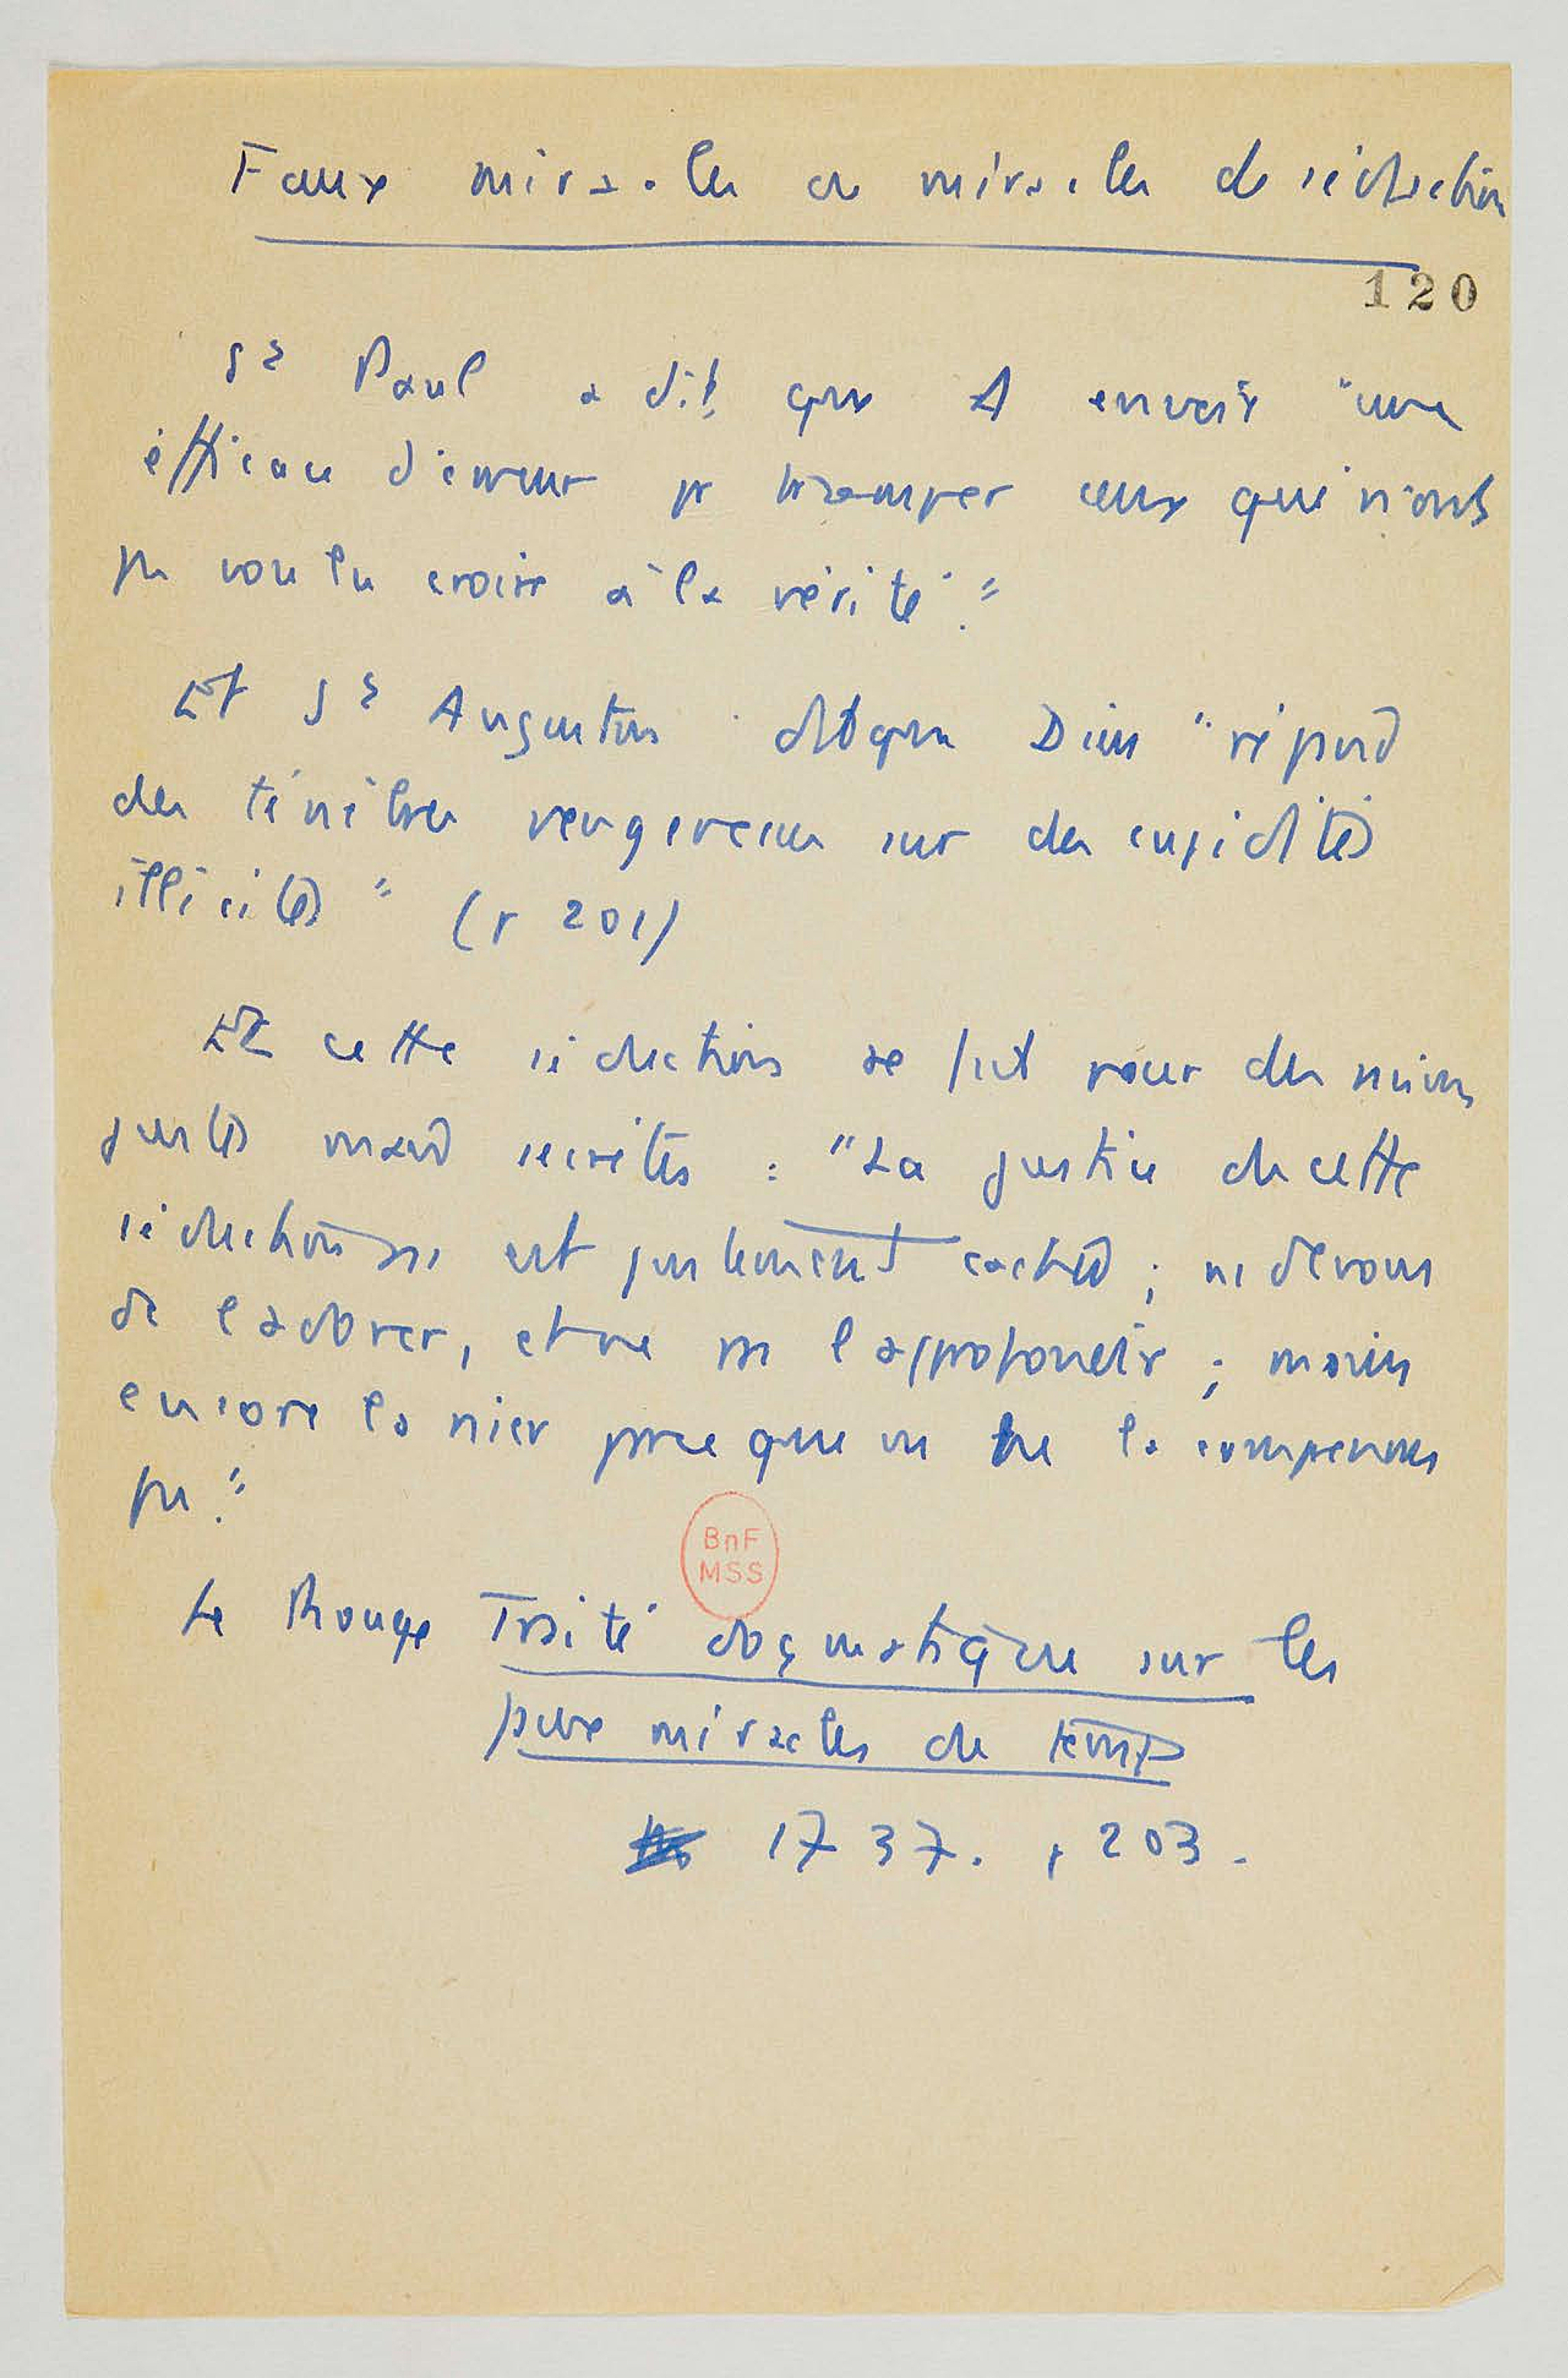 Faux miracles ou miracles de séduction
120
St Paul a dit que D envoie "une
efficace d'erreur pr tromper ceux qui n'ont
pas voulu croire à la vérité."
Et St Augustin dit que Dieu "répand
des ténèbres vengeresses sur des cupidités
illicites" (p 201)
Et cette séduction se fait pour des raisons
justes mais secrètes : "La justice de cette
séduction est justement cachée ; ns devons
de l'adorer, et ne pas l'approfondir ; moins
encore la nier parce que ns ne la comprenons
pas."
BnF
MSS
Le Rouge Traité dogmatique sur les
faux miracles du temps
1737. p 203.